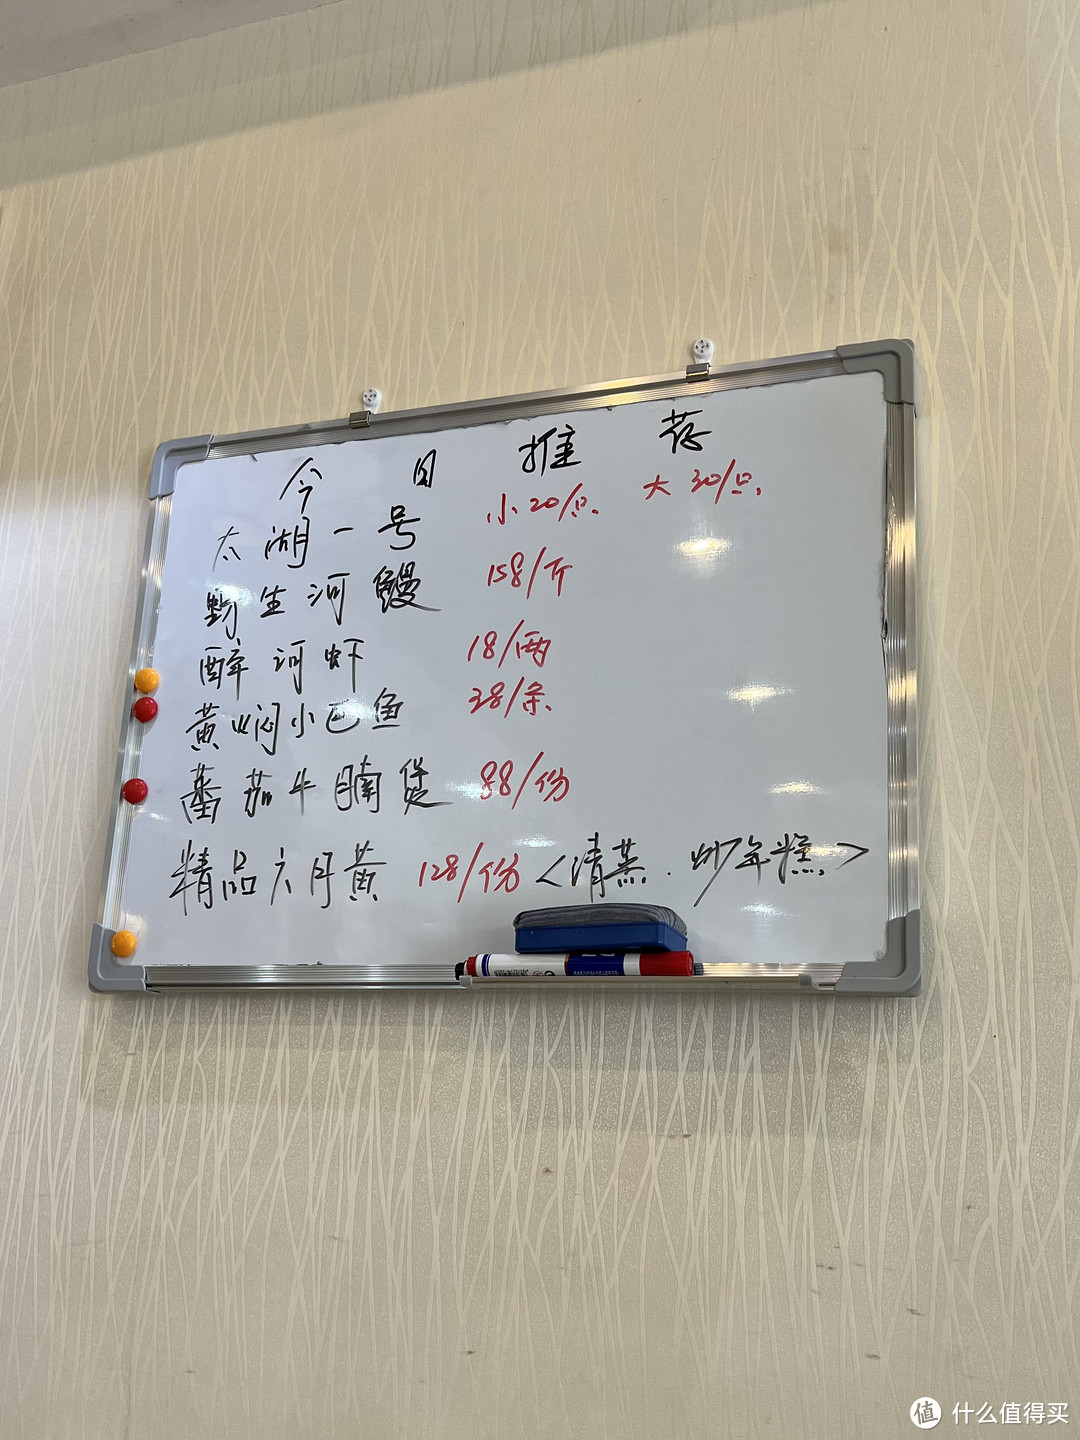 今日推荐
太湖一号 小20/只 大30/只
野生河鳗 158/斤
醉河虾 18/两
黄焖小巴鱼 38/条
蕃茄牛腩煲 88/份
精品六月黄 128/份<清蒸.炒年糕>
值 什么值得买